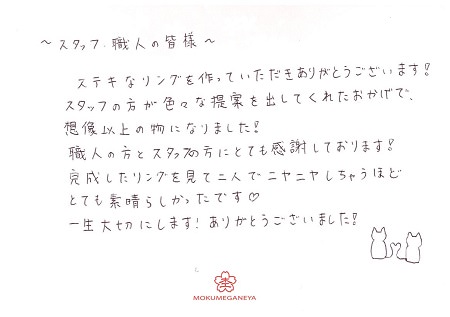 ～スタッフ、職人の皆様～
ステキなリングを作っていただきありがとうございます！
スタッフの方が色々な提案を出してくれたおかげで、
想像以上の物になりました！
職人の方とスタッフの方にとても感謝しております！
完成したリングを見て二人でニヤニヤしちゃうほど
とても素晴らしかったです♡
一生大切にします！ありがとうございました！
MOKUMEGANEYA